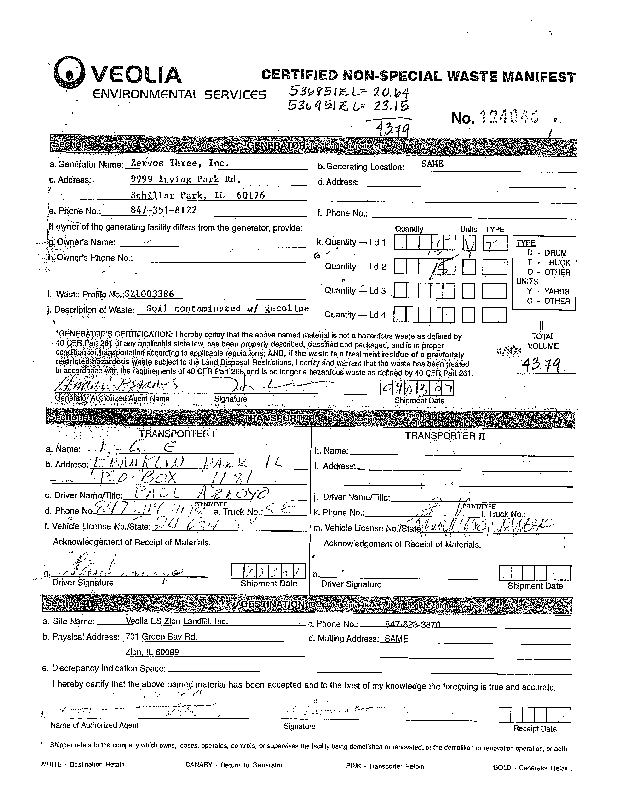 VEOLIA
ENVIRONMENTAL SERVICES
CERTIFIED NON-SPECIAL WASTE MANIFEST
536851 EL= 20.64
536951 EL= 23.15
4379
No. 124046
GENERATOR
a. Generator Name: Zervos Three, Inc.
b. Generating Location: SAME
c. Address: 9999 Irving Park Rd.
d. Address:
Schiller Park, IL 60176
e. Phone No.: 847-351-8122
f. Phone No.:
If owner of the generating facility differs from the generator, provide:
g. Owner's Name:
h. Owner's Phone No.:
k. Quantity — Ld 1
Quantity Units TYPE
Quantity — Ld 2
Quantity — Ld 3
Quantity — Ld 4
TYPE
D - DRUM
T - TRUCK
O - OTHER
UNITS
Y - YARDS
O - OTHER
i. Waste Profile No.:
j. Description of Waste: Soil contaminated w/ gasoline
"GENERATOR'S CERTIFICATION: I hereby certify that the above named material is not a hazardous waste as defined by
40 CFR Part 261 or any applicable state law, has been properly described, classified and packaged, and is in proper
condition for transportation according to applicable regulations; AND, if the waste is a treatment residue of a previously
restricted hazardous waste subject to the Land Disposal Restrictions, I certify and warrant that the waste has been treated
in accordance with the requirements of 40 CFR Part 268 and is no longer a hazardous waste as defined by 40 CFR Part 261.
TOTAL
VOLUME
43.79
Generator Authorized Agent Name
Signature
Shipment Date
TRANSPORTER
TRANSPORTER I
TRANSPORTER II
a. Name:
h. Name:
b. Address: FRANKLIN PARK IL
i. Address:
P.O. BOX 1121
c. Driver Name/Title: PAUL ARROYO
j. Driver Name/Title:
d. Phone No.:
e. Truck No.:
k. Phone No.:
l. Truck No.:
f. Vehicle License No./State:
m. Vehicle License No./State:
Acknowledgement of Receipt of Materials.
Acknowledgement of Receipt of Materials.
g.
n.
Driver Signature
Shipment Date
Driver Signature
Shipment Date
DESTINATION
a. Site Name: Veolia ES Zion Landfill, Inc.
c. Phone No.: 847-623-3870
b. Physical Address: 701 Green Bay Rd.
d. Mailing Address: SAME
Zion, IL 60099
e. Discrepancy Indication Space:
I hereby certify that the above named material has been accepted and to the best of my knowledge the foregoing is true and accurate.
f.
Name of Authorized Agent
Signature
Receipt Date
* Shipper refers to the company which owns, leases, operates, controls, or supervises the facility being demolished or renovated, or the demolition or renovation operation, or both
WHITE - Destination Retain
CANARY - Return to Generator
PINK - Transporter Retain
GOLD - Generator Retain